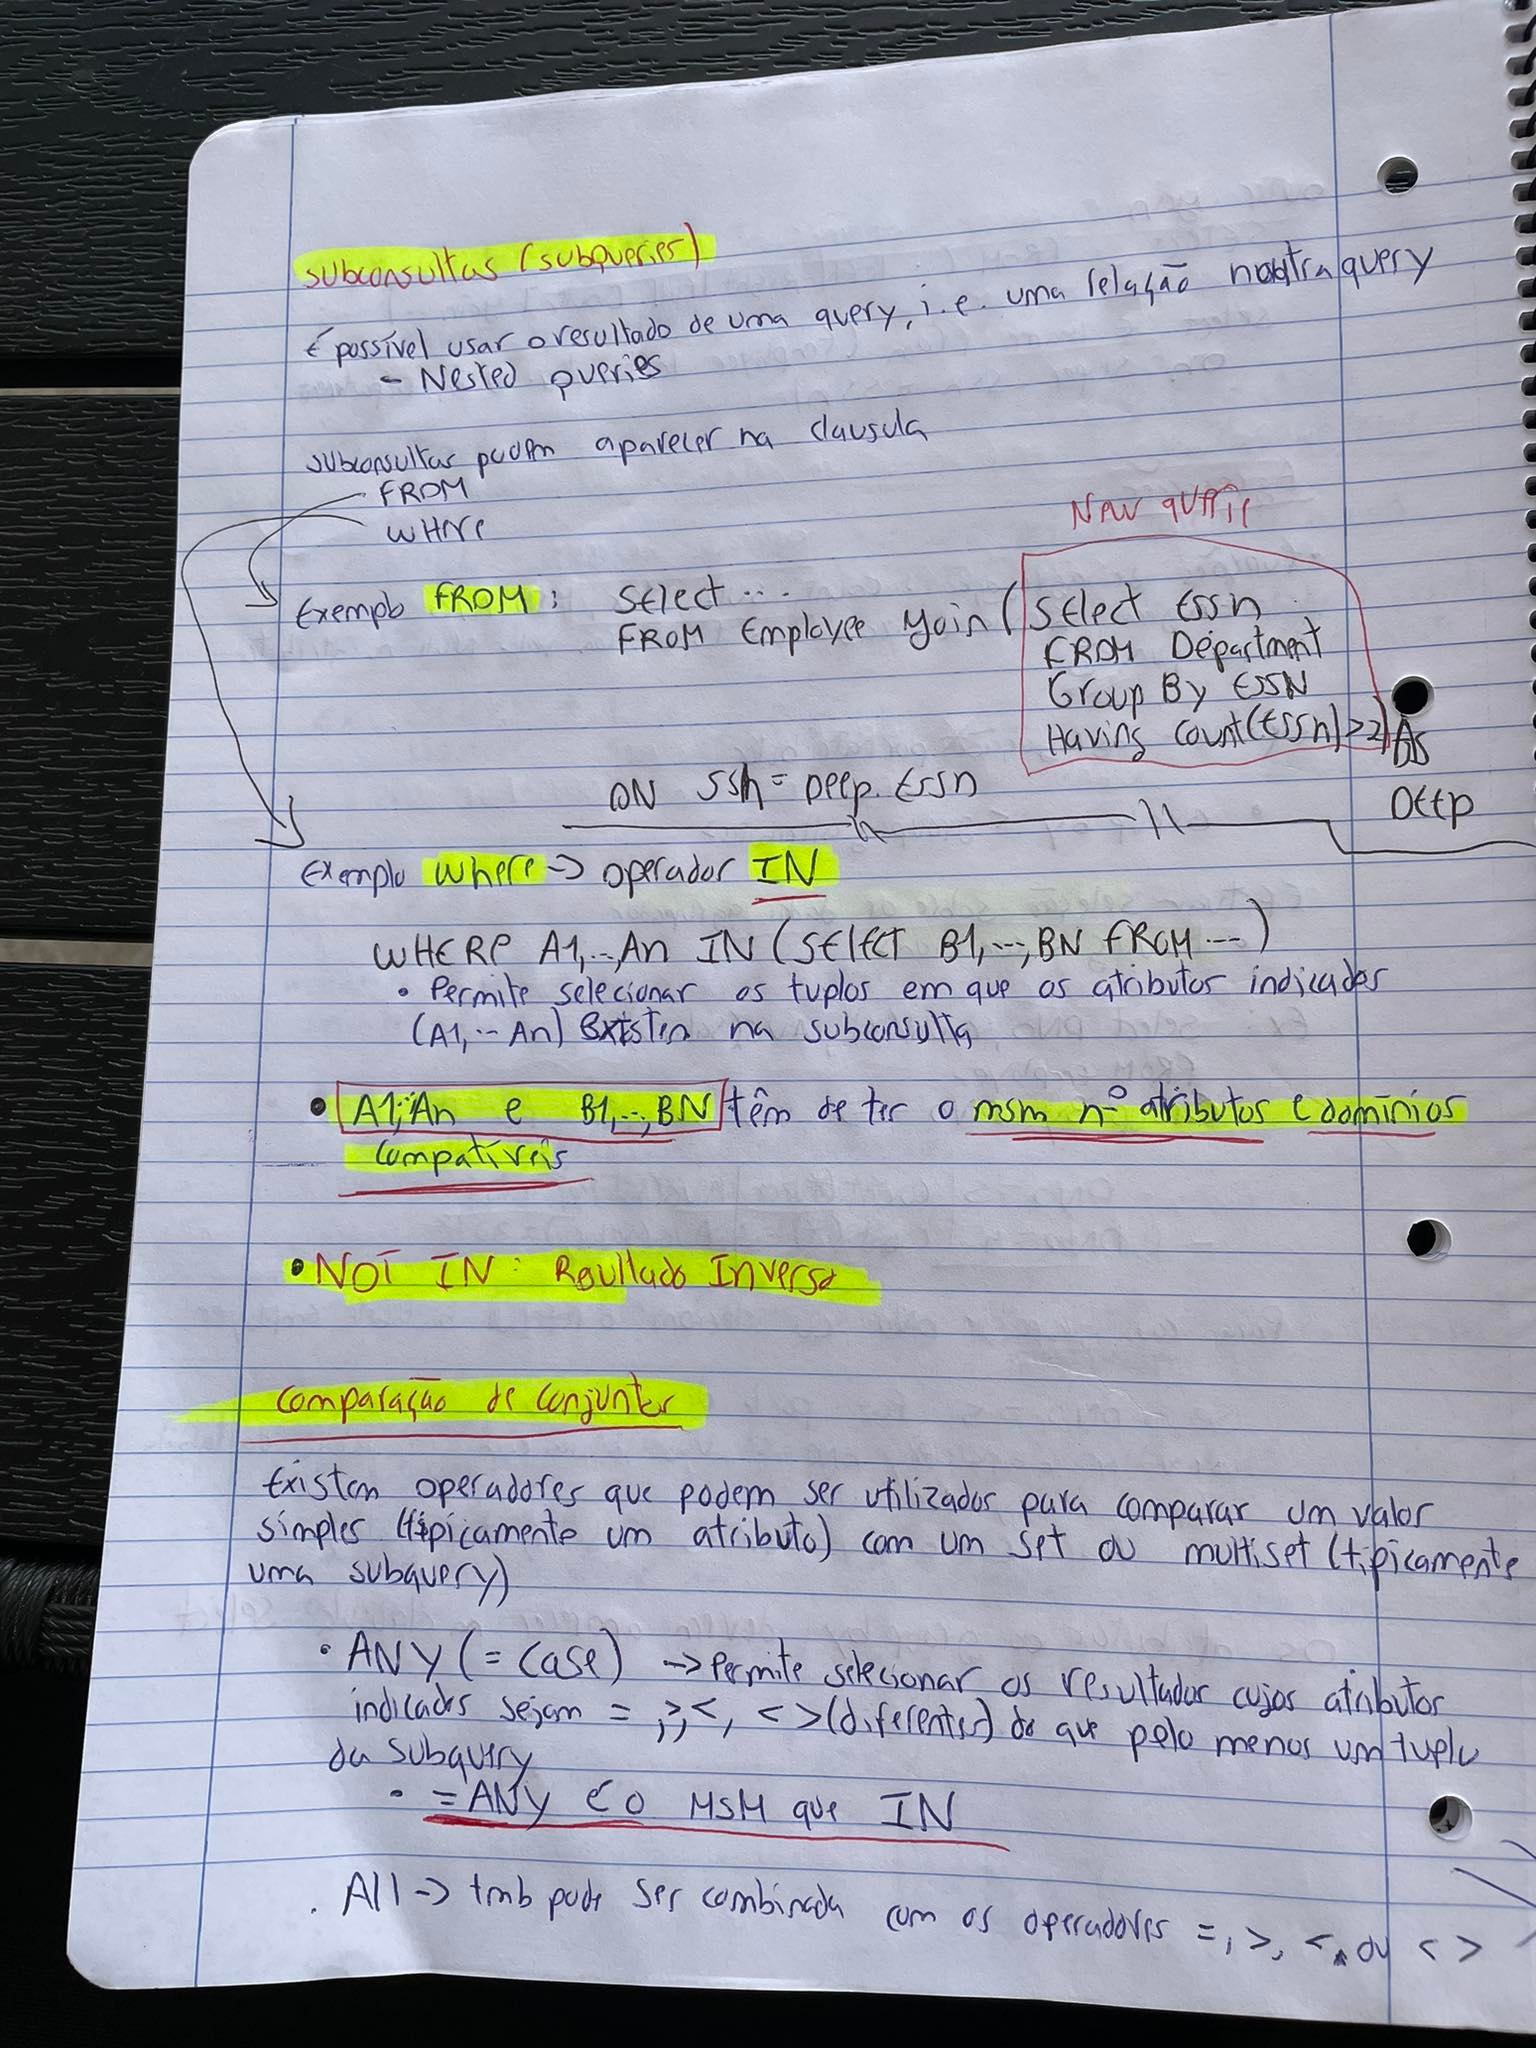 Subconsultas (subqueries)
É possível usar o resultado de uma query, i.e. uma relação noutra query
- Nested queries
Subconsultas podem aparecer na clausula
FROM
WHERE
New querie
Exemplo FROM: Select ...
FROM Employee Join (Select Essn
FROM Department
Group By ESSN
Having count(Essn)>2) As
Deep
ON Ssn = Deep.Essn
Exemplo Where -> operador IN
WHERE A1,..,An IN (Select B1,...,BN FROM ...)
• Permite selecionar os tuplos em que os atributos indicados
(A1,..An) Existem na subconsulta
• A1,..An e B1,...,BN têm de ter o msm nº atributos e domínios
compatíveis
• NOT IN: Resultado Inverso
Comparação de conjuntos
Existem operadores que podem ser utilizados para comparar um valor
simples (tipicamente um atributo) com um set ou multiset (tipicamente
uma subquery)
• ANY (= Case) -> Permite selecionar os resultados cujos atributos
indicados sejam =, >, <, <> (diferentes) do que pelo menos um tuplo
da subquery
• =ANY é o MSM que IN
. All -> tmb pode ser combinada com os operadores =, >, <, ou <>